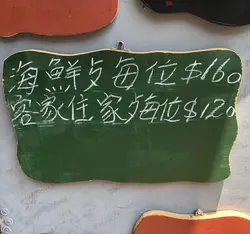 海鮮歺每位$160
客家住家歺每位$120